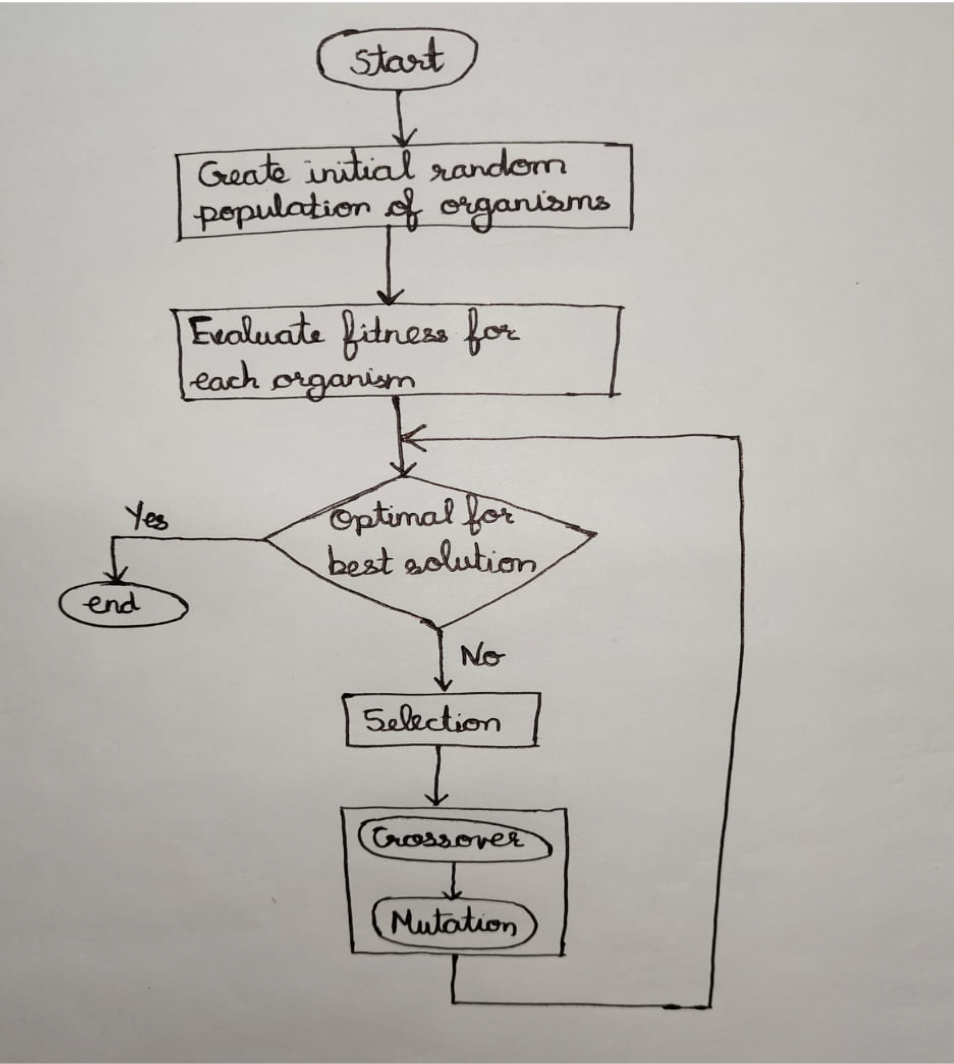 Start
Create initial random
population of organisms
Evaluate fitness for
each organism
Optimal for
best solution
Yes
end
No
Selection
Crossover
Mutation